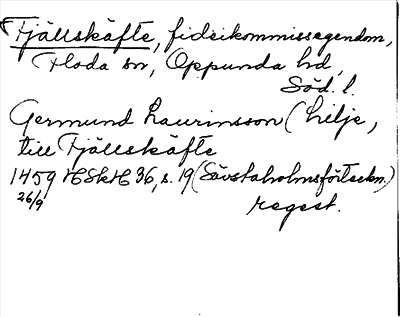 Fjällskäfte, fideikommissegendom,
Floda sn, Oppunda hd,
Söd. l.
Germund Laurinsson (Lilje,
till Fjällskäfte
1459 HSkH 36, s. 19 (Sävstaholmsförteckn.)
26/9 regest.